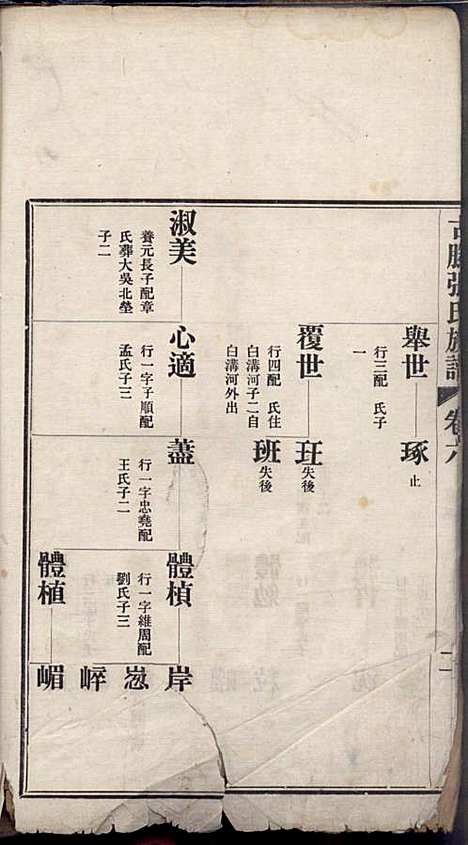 張氏族譜 卷六
二
舉世
行三配 氏子
一
琢
止
覆世
行四配 氏住
白溝河子二自
白溝河外出
玨
失後
班
失後
淑美
養元長子配章
氏葬大吳北塋
子二
心適
行一字子順配
孟氏子三
蓋
行一字忠堯配
王氏子二
體楨
行一字維周配
劉氏子三
岸
崺
崪
體植
嵋